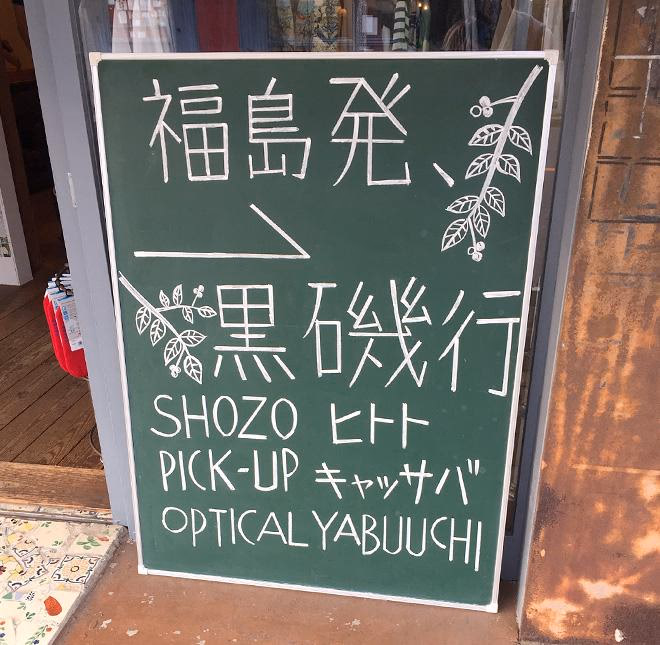 福島発、
黒磯行
SHOZO ヒトト
PICK-UP キャッサバ
OPTICAL YABUUCHI